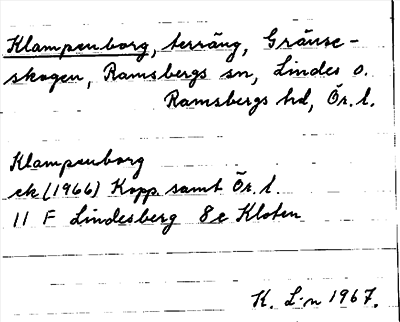 Klampenborg, terräng, Gränse-
skogen, Ramsbergs sn, Lindes o.
Ramsbergs hd, Ör. l.
Klampenborg
ek (1966) Kopp. samt Ör. l.
11 F Lindesberg 8e Kloten
K. L-n 1967.